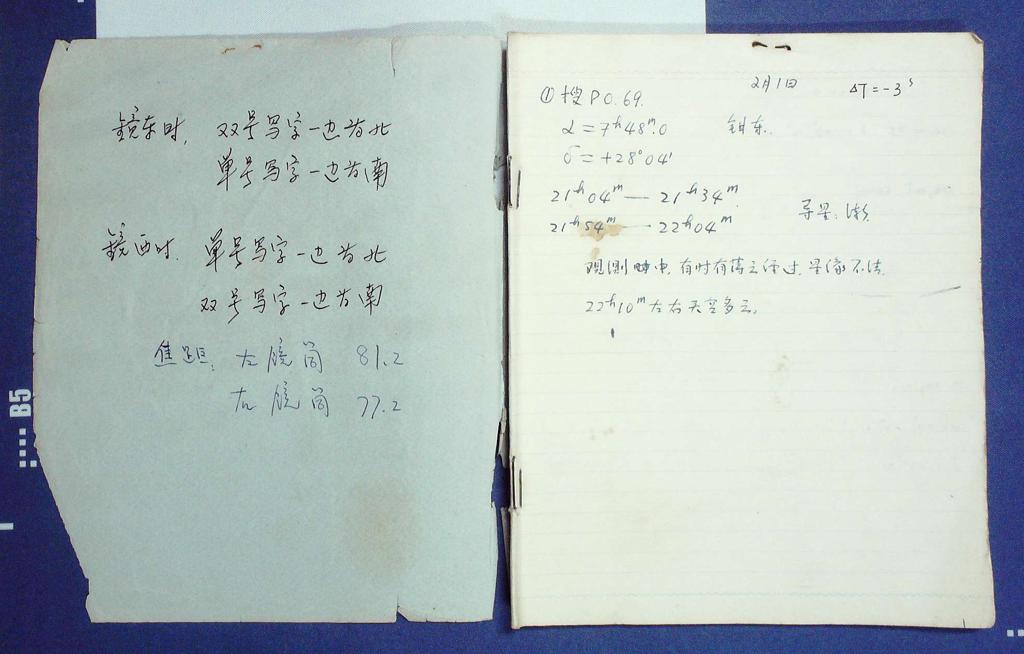 镜东时, 双号写字一边为北
单号写字一边为南
镜西时, 单号写字一边为北
双号写字一边为南
焦距: 左镜筒 81.2
右镜筒 77.2
2月1日 ΔT=-3ˢ
① 搜 P0.69.
α=7ʰ48ᵐ.0 镜东.
δ=+28°04′
21ʰ04ᵐ — 21ʰ34ᵐ
21ʰ54ᵐ — 22ʰ04ᵐ
导星:
观测时中, 有时有薄云通过, 星像不
22ʰ10ᵐ左右天空多云,
B5